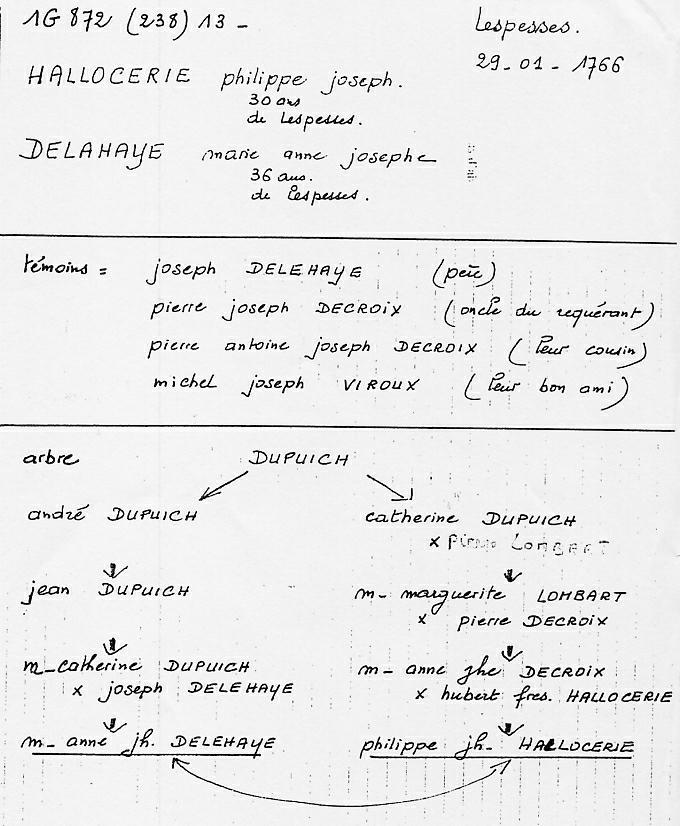 1G 872 (238) 13 -
Lespesses.
29-01-1766
HALLOCERIE philippe joseph.
30 ans
de Lespesses.
DELAHAYE marie anne josephe
36 ans.
de Lespesses.
témoins = joseph DELEHAYE (père)
pierre joseph DECROIX (oncle du requérant)
pierre antoine joseph DECROIX (leur cousin)
michel joseph VIROUX (leur bon ami)
arbre DUPUICH
andré DUPUICH
catherine DUPUICH
x pierre LOMBART
jean DUPUICH
m- marguerite LOMBART
x pierre DECROIX
m-catherine DUPUICH
x joseph DELEHAYE
m- anne jhe DECROIX
x hubert fres. HALLOCERIE
m- anne jh. DELEHAYE
philippe jh- HALLOCERIE